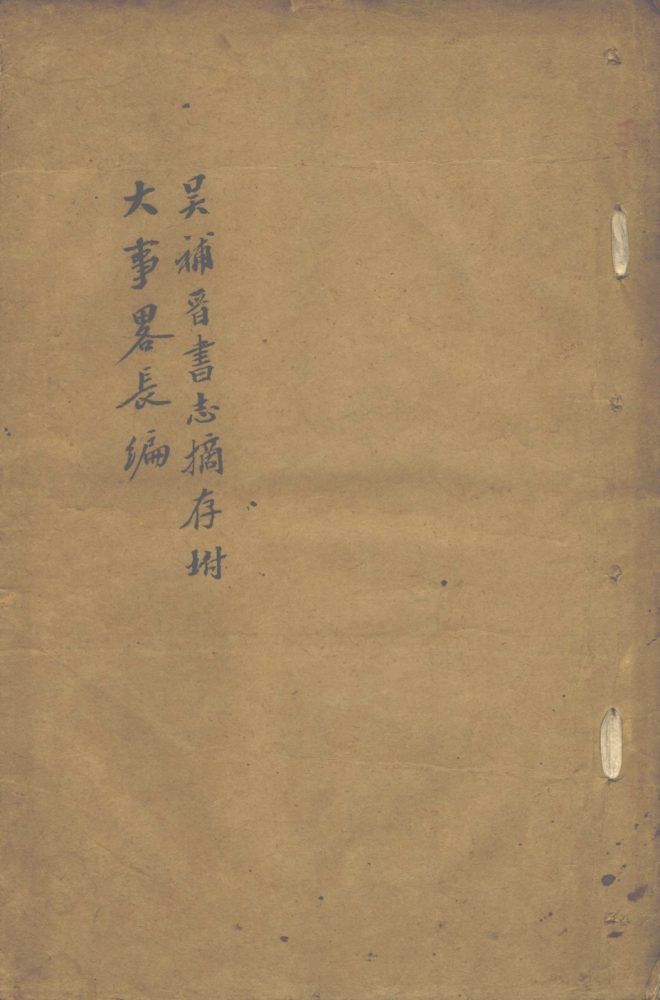 吴補晉書志摘存坿
大事畧長编